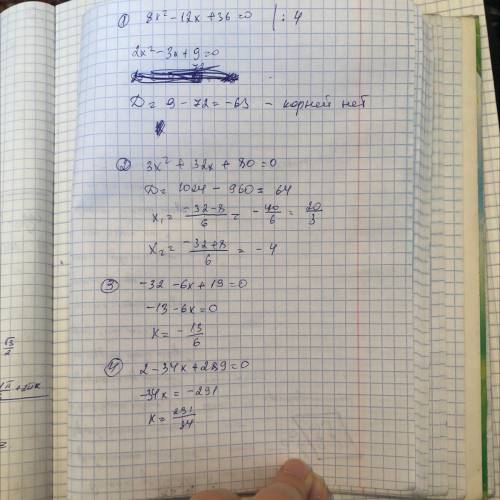 ① 8x² - 12x + 36 = 0 | : 4
2x² - 3x + 9 = 0
D = 9 - 72 = -63 - корней нет
② 3x² + 32x + 80 = 0
D = 1024 - 960 = 64
x₁ = (-32-8)/6 = -40/6 = 20/3
x₂ = (-32+8)/6 = -4
③ -32 - 6x + 19 = 0
-13 - 6x = 0
x = -13/6
④ 2 - 34x + 289 = 0
-34x = -291
x = 291/34